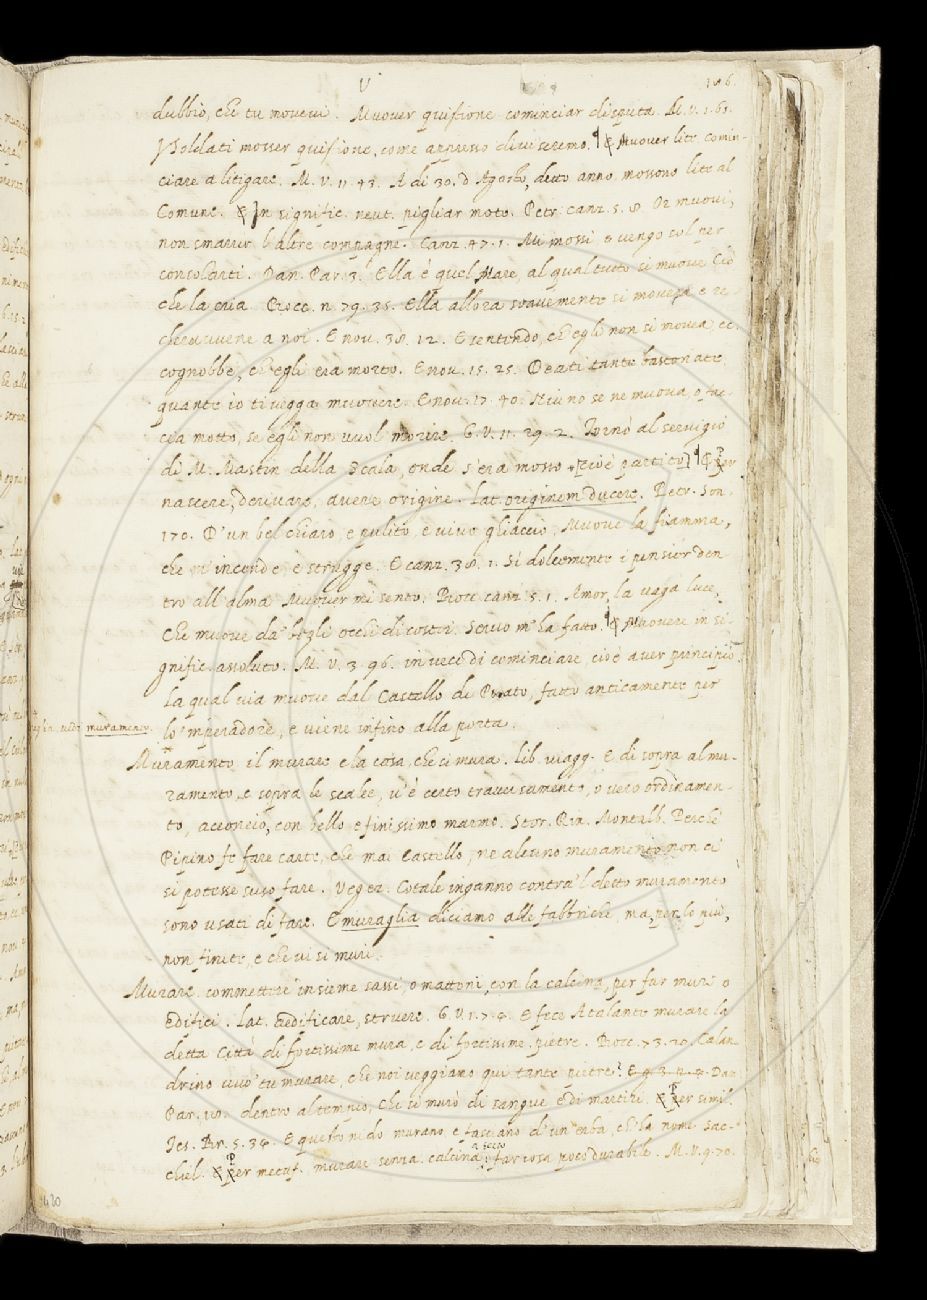 V
186.
dubbio, che tu movevi. Muover quistione cominciar disputa. M. V. 1. 61.
I soldati mosser quistione, come appresso diviseremo. ¶ & Muover lite comin-
ciare a litigare. M. V. 11. 43. A dì 30. d'Agosto, detto anno mossono lite al
Comune. & In signific. neut. pigliar moto. Petr. canz. 5. 8. Or muovi,
non smarrir l'altre compagne. Canz. 47. 1. Mi mossi e vengo sol per
consolarti. Dan. Par. 3. Ella è quel Mare, al qual tutto si muove Ciò
che la cria. Bocc. n. 79. 35. Ella allora soavemente si moverà e re-
cherauvene a noi. E nov. 38. 12. E sentendo, ch'egli non si movea ec.
cognobbe, ch'egli era morto. E nov. 15. 25. Dearti tante bastonate
quante io ti vegga muovere. E nov. 17. 40. Niuno se ne muova, o fac-
cia motto, se egli non vuol morire. G. V. 11. 29. 2. Tornò al servigio
di M. Mastin della Scala, onde s'era mosso [cioè partito] ¶ & Per
nascere, derivare, avere origine. Lat. originem ducere. Petr. Son.
170. D'un bel chiaro, e pulito, e vivo ghiaccio, Muove la fiamma,
che m'incende, e strugge. E canz. 38. 1. Sì dolcemente i pensier den-
tro all'alma Muover mi sento. Bocc. canz. 5. 1. Amor, la vaga luce,
Che muove da' begli occhi di costei. Servo m'ha fatto. ¶ & Muovere in si-
gnific. assoluto. M. V. 3. 96. in vece di cominciare, cioè aver principio.
La qual via muove dal Castello di Prato, fatto anticamente per
lo 'mperadore, e viene infino alla porta.
vedi muramento.
Muramento il murare e la cosa, che si mura. lib. viagg. E di sopra al mu-
ramento, e sopra le scalee, v'è certo traversamento, o vero ordinamen-
to, acconcio, con bello e finissimo marmo. Stor. Rin. Montalb. Perchè
Pipino fe fare carte, che mai Castello, ne alcuno muramento non ci
si potesse suso fare. Veger. Cotale inganno contra 'l detto muramento
sono usati di fare. E muraglia diciamo alle fabbriche, ma, per lo più,
non finite, e che vi si muri.
Murare. commettere insieme sassi, o mattoni, con la calcina, per far muri o
Edifici. Lat. aedificare, struere. G. V. 1. 7. 4. E fece Atalante murare la
detta Città di fortissime mura, e di fortissime pietre. Bocc. 73. 20. Calan-
drino vuo' tu murare, che noi veggiamo qui tante pietre? E g. 3. n. 4. Dan.
Par. 18. dentro al tempio, Che si murò di sangue e di martiri. & Per simil.
Tes. Br. 5. 34. E questo nido murano e fasciano d'un'erba, ch'ha nome sac-
chiel. & Per metaf. murare senza calcina a secco: far cosa poco durabile. M. V. 9. 70.
420